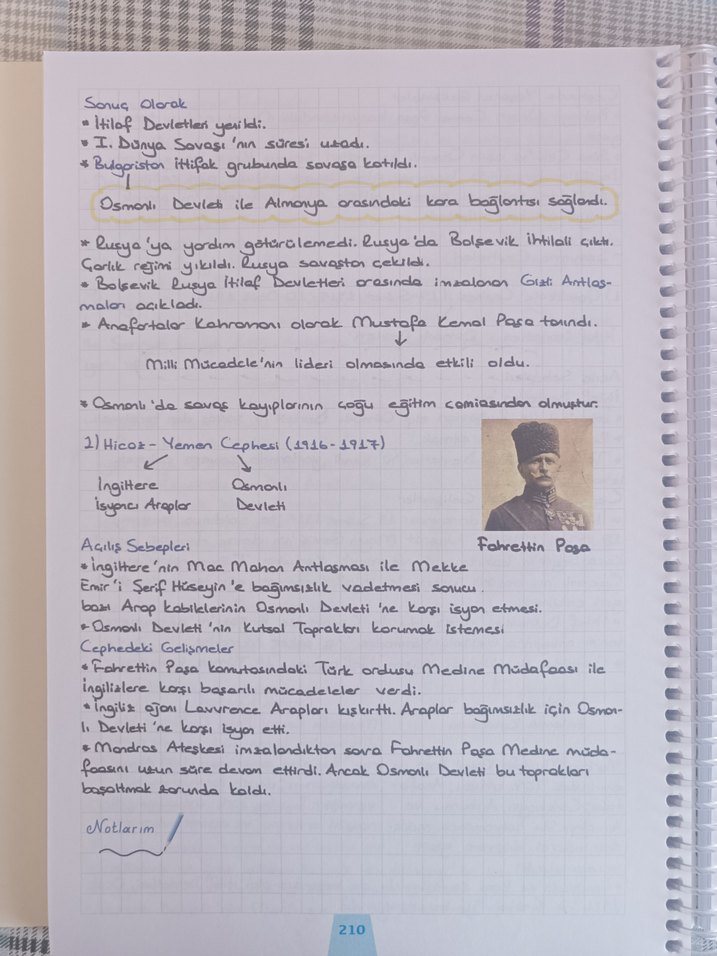 Sonuç Olarak
* İtilaf Devletleri yenildi.
* I. Dünya Savaşı'nın süresi uzadı.
* Bulgaristan İttifak grubunda savaşa katıldı.
Osmanlı Devleti ile Almanya arasındaki kara bağlantısı sağlandı.
* Rusya'ya yardım götürülemedi. Rusya'da Bolşevik İhtilali çıktı.
Çarlık rejimi yıkıldı. Rusya savaştan çekildi.
* Bolşevik Rusya İtilaf Devletleri arasında imzalanan Gizli Antlaş-
maları açıkladı.
* Anafartalar Kahramanı olarak Mustafa Kemal Paşa tanındı.
Milli Mücadele'nin lideri olmasında etkili oldu.
* Osmanlı'da savaş kayıplarının çoğu eğitim camiasından olmuştur.
2) Hicaz - Yemen Cephesi (1916-1917)
İngiltere Osmanlı
İsyancı Araplar Devleti
Fahrettin Paşa
Açılış Sebepleri
* İngiltere'nin Mac Mahon Antlaşması ile Mekke
Emir'i Şerif Hüseyin'e bağımsızlık vadetmesi sonucu
bazı Arap kabilelerinin Osmanlı Devleti'ne karşı isyan etmesi.
* Osmanlı Devleti'nin Kutsal Toprakları korumak istemesi
Cephedeki Gelişmeler
* Fahrettin Paşa komutasındaki Türk ordusu Medine Müdafaası ile
İngilizlere karşı başarılı mücadeleler verdi.
* İngiliz ajanı Lavvrence Arapları kışkırttı. Araplar bağımsızlık için Osman-
lı Devleti'ne karşı isyan etti.
* Mondros Ateşkesi imzalandıktan sonra Fahrettin Paşa Medine müda-
faasını uzun süre devam ettirdi. Ancak Osmanlı Devleti bu toprakları
boşaltmak zorunda kaldı.
Notlarım
210